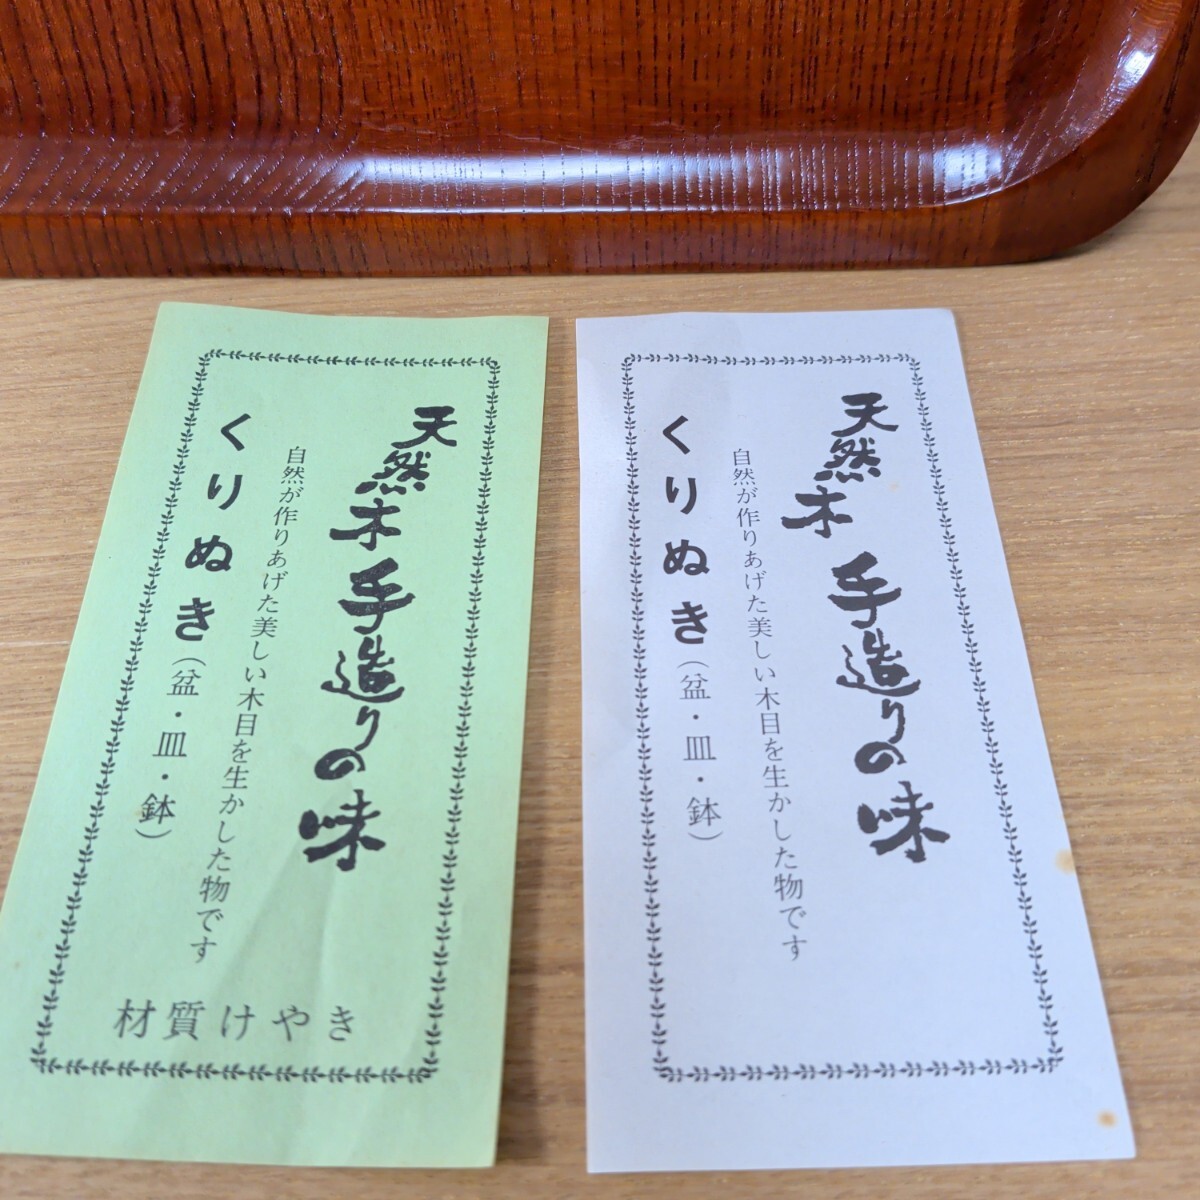 天然木 手造りの味
自然が作りあげた美しい木目を生かした物です
くりぬき(盆・皿・鉢)
材質けやき
天然木 手造りの味
自然が作りあげた美しい木目を生かした物です
くりぬき(盆・皿・鉢)